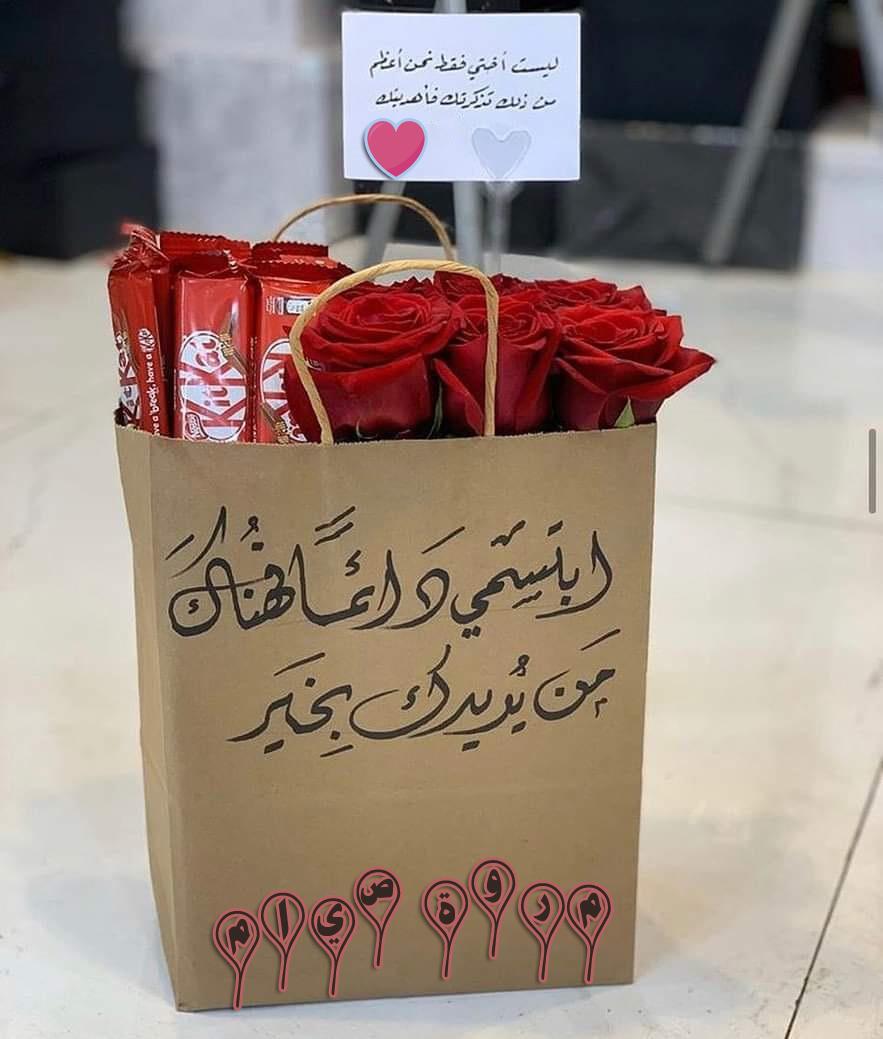 ليست أختي فقط نحن أعظم
من ذلك تذكرتك فأهديتك
KitKat
have a break, have a
KitKat
Nestlé
ابتسمي دَائمًا فهُناك
مَن يُريدك بِخَير
مروة صيام